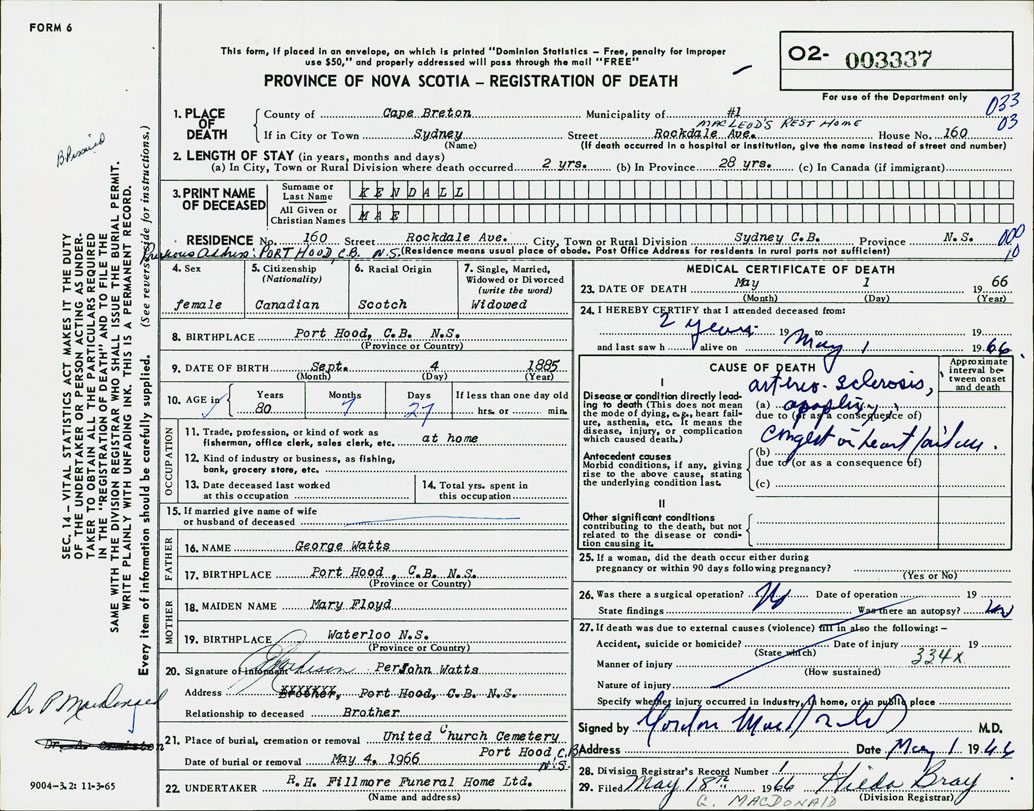 FORM 6
This form, if placed in an envelope, on which is printed "Dominion Statistics – Free, penalty for improper
use $50," and properly addressed will pass through the mail "FREE"
PROVINCE OF NOVA SCOTIA – REGISTRATION OF DEATH
O2- 003337
For use of the Department only
033
03
1. PLACE OF DEATH
County of Cape Breton Municipality of #1
MACLEOD'S REST HOME
If in City or Town Sydney Street Rockdale Ave. House No. 160
(Name) (If death occurred in a hospital or institution, give the name instead of street and number)
2. LENGTH OF STAY (in years, months and days)
(a) In City, Town or Rural Division where death occurred 2 yrs. (b) In Province 28 yrs. (c) In Canada (if immigrant)
3. PRINT NAME OF DECEASED
Surname or Last Name KENDALL
All Given or Christian Names MAE
RESIDENCE No. 160 Street Rockdale Ave. City, Town or Rural Division Sydney C.B. Province N.S.
000
10
Previous Address: PORT HOOD, C.B. N.S. (Residence means usual place of abode. Post Office Address for residents in rural parts not sufficient)
4. Sex
female
5. Citizenship
(Nationality)
Canadian
6. Racial Origin
Scotch
7. Single, Married,
Widowed or Divorced
(write the word)
Widowed
8. BIRTHPLACE Port Hood, C.B. N.S.
(Province or Country)
9. DATE OF BIRTH Sept. 4 1885
(Month) (Day) (Year)
10. AGE in Years Months Days If less than one day old
80 7 27 hrs. or min.
OCCUPATION
11. Trade, profession, or kind of work as
fisherman, office clerk, sales clerk, etc. at home
12. Kind of industry or business, as fishing,
bank, grocery store, etc.
13. Date deceased last worked
at this occupation
14. Total yrs. spent in
this occupation
15. If married give name of wife
or husband of deceased
FATHER
16. NAME George Watts
17. BIRTHPLACE Port Hood, C.B. N.S.
(Province or Country)
MOTHER
18. MAIDEN NAME Mary Floyd
19. BIRTHPLACE Waterloo N.S.
(Province or Country)
20. Signature of informant Per John Watts
Address Brother, Port Hood, C.B. N.S.
Relationship to deceased Brother
21. Place of burial, cremation or removal United Church Cemetery
Port Hood C.B.
N.S.
Date of burial or removal May 4, 1966
22. UNDERTAKER R.H. Fillmore Funeral Home Ltd.
(Name and address)
MEDICAL CERTIFICATE OF DEATH
23. DATE OF DEATH May 1 1966
(Month) (Day) (Year)
24. I HEREBY CERTIFY that I attended deceased from:
2 years 19 to 19
and last saw h alive on May 1 1966
CAUSE OF DEATH
Approximate
interval be-
tween onset
and death
I
Disease or condition directly lead-
ing to death (This does not mean
the mode of dying, e.g., heart fail-
ure, asthenia, etc. It means the
disease, injury, or complication
which caused death.)
arterio-sclerosis,
(a) apoplexy,
due to (or as a consequence of)
congestive heart failure.
Antecedent causes
Morbid conditions, if any, giving
rise to the above cause, stating
the underlying condition last.
(b)
due to (or as a consequence of)
(c)
II
Other significant conditions
contributing to the death, but not
related to the disease or condi-
tion causing it.
25. If a woman, did the death occur either during
pregnancy or within 90 days following pregnancy?
(Yes or No)
26. Was there a surgical operation? No Date of operation 19
State findings Was there an autopsy? no
27. If death was due to external causes (violence) fill in also the following: –
Accident, suicide or homicide? Date of injury 19
(State which) 334X
Manner of injury
(How sustained)
Nature of injury
Specify whether injury occurred in industry, in home, or in public place
Signed by Gordon MacDonald M.D.
Address Date May 1 1966
28. Division Registrar's Record Number 1
29. Filed May 18th 1966 Hilda Bray
(Division Registrar)
G. MACDONALD
SEC. 14 – VITAL STATISTICS ACT MAKES IT THE DUTY
OF THE UNDERTAKER OR PERSON ACTING AS UNDER-
TAKER TO OBTAIN ALL THE PARTICULARS REQUIRED
IN THE "REGISTRATION OF DEATH" AND TO FILE THE
SAME WITH THE DIVISION REGISTRAR WHO SHALL ISSUE THE BURIAL PERMIT.
WRITE PLAINLY WITH UNFADING INK. THIS IS A PERMANENT RECORD.
Every item of information should be carefully supplied. (See reverse side for instructions.)
Dr P MacDonald
9004–3.2: 11-3-65